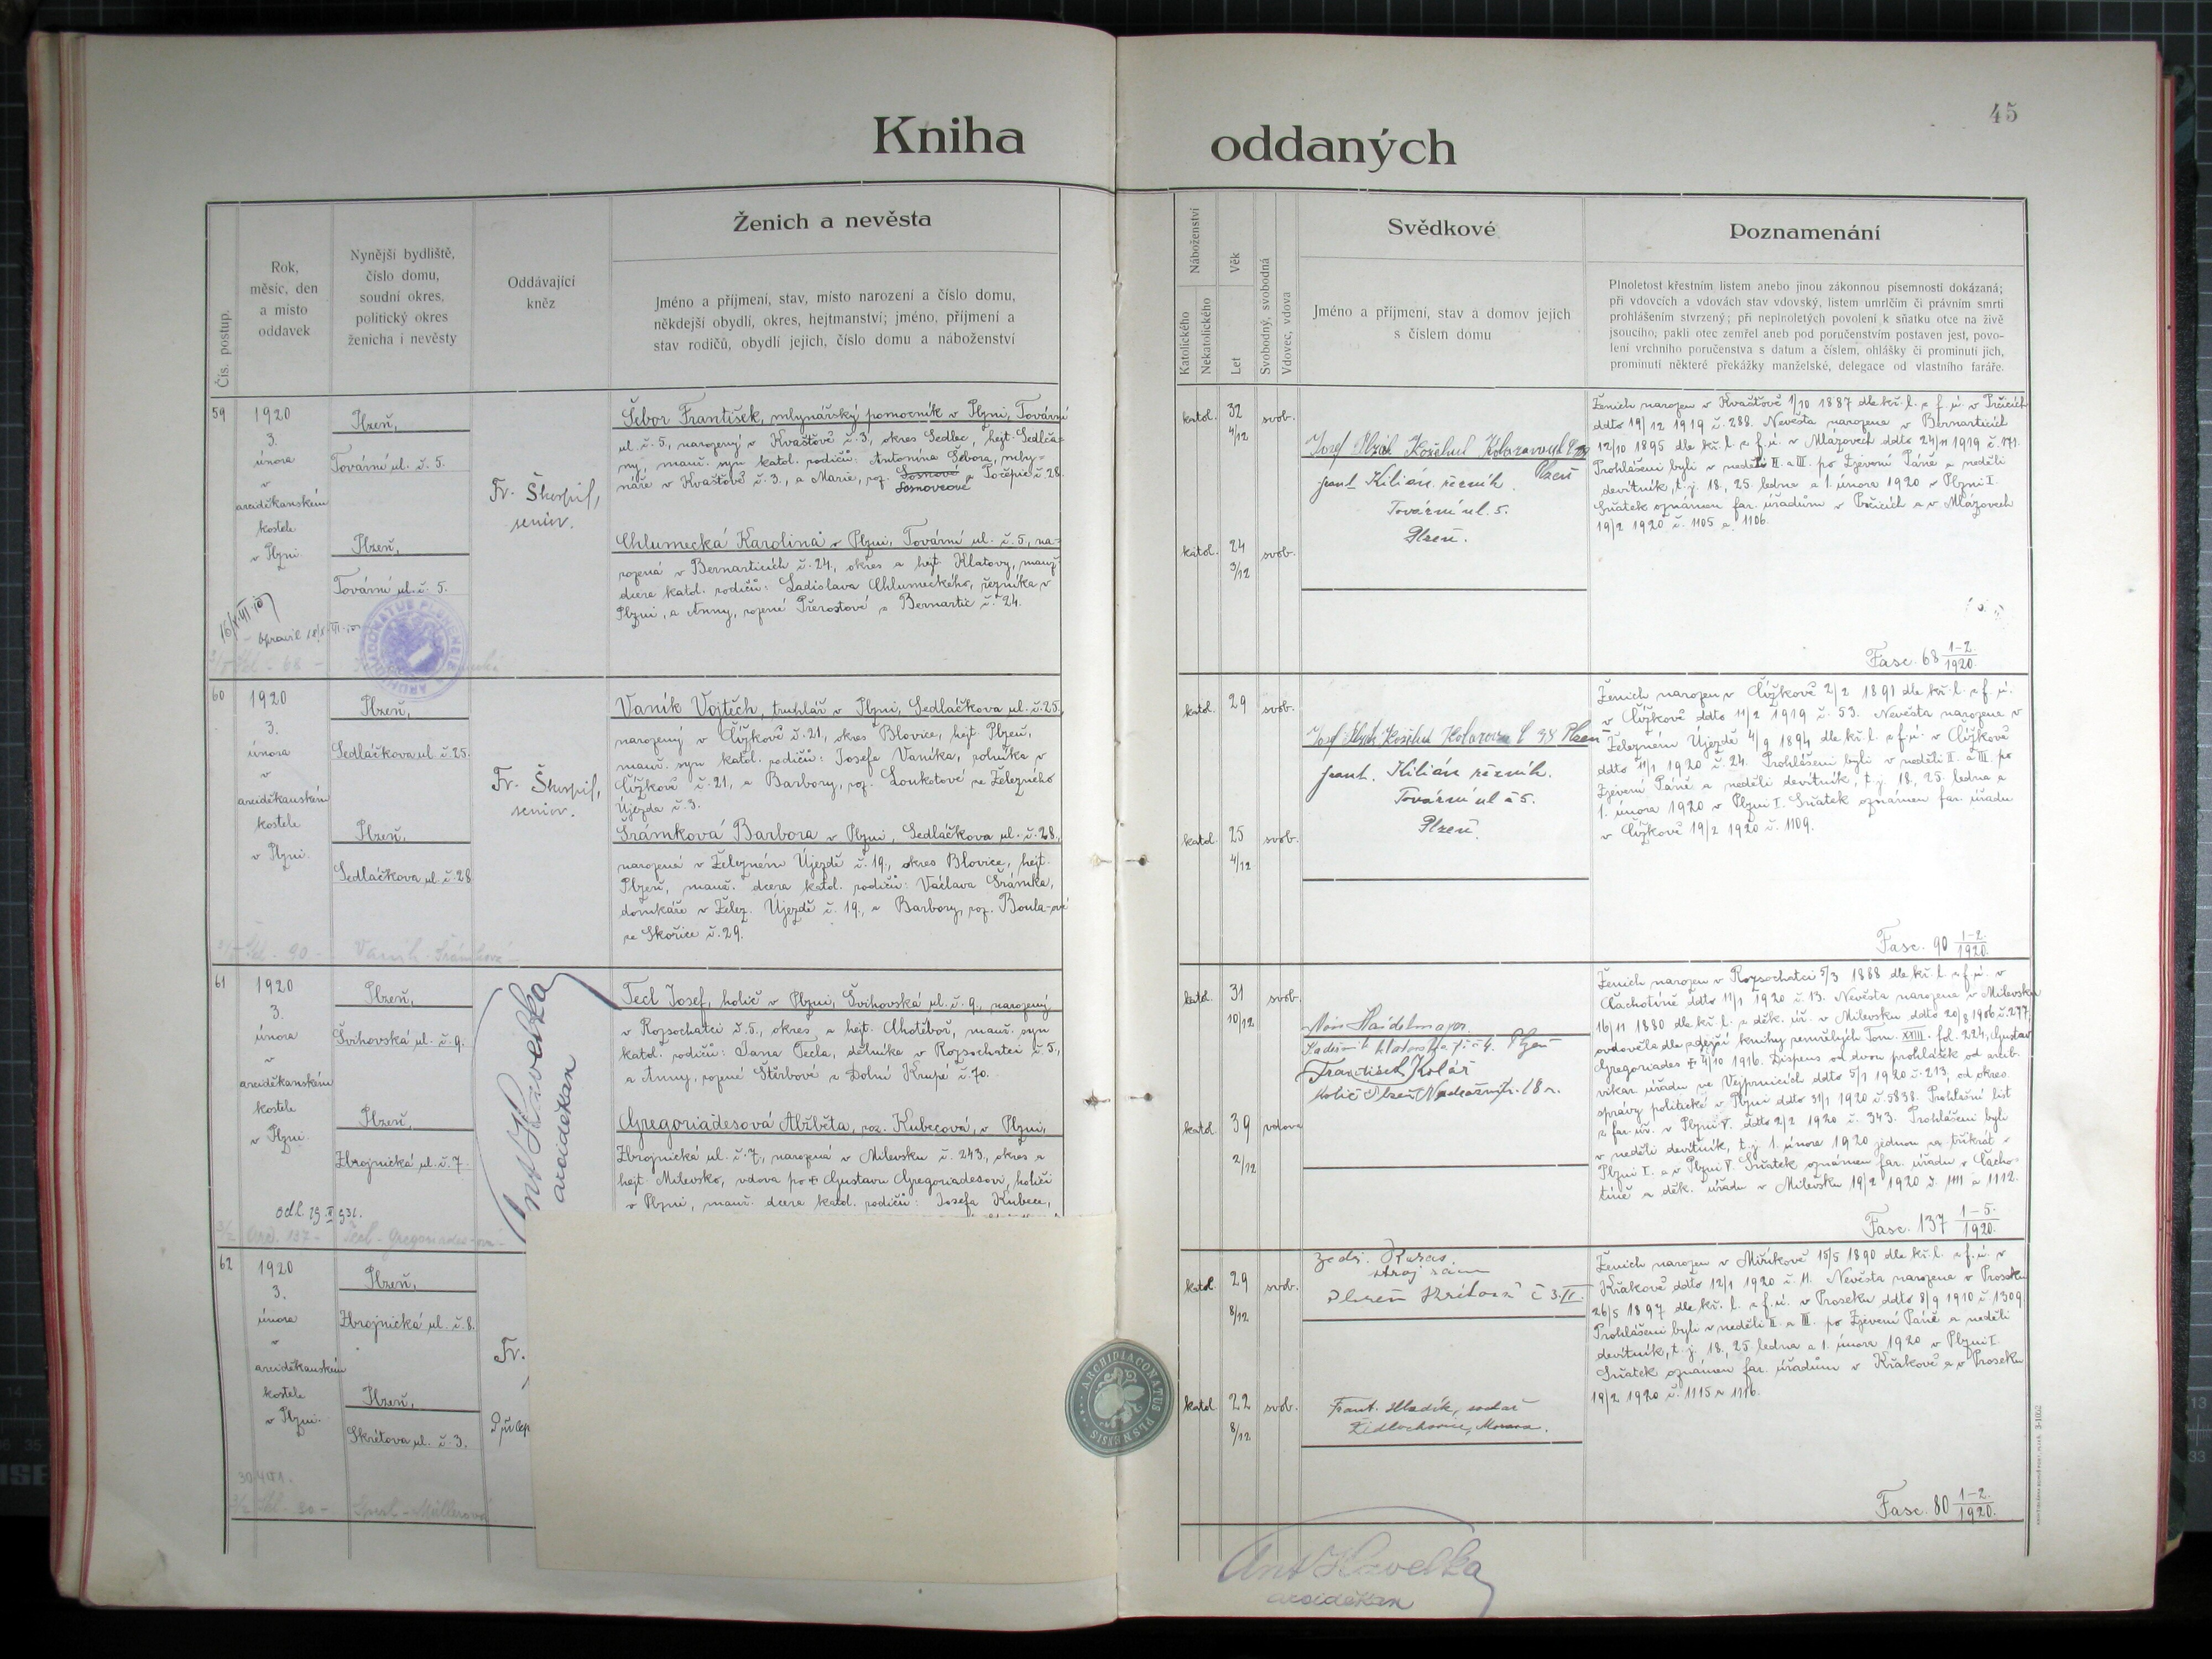 45
Kniha oddaných
Čís. postup.
Rok,
měsíc, den
a místo
oddavek
Nynější bydliště,
číslo domu,
soudní okres,
politický okres
ženicha i nevěsty
Oddávající
kněz
Ženich a nevěsta
Jméno a příjmení, stav, místo narození a číslo domu,
někdejší obydlí, okres, hejtmanství; jméno, příjmení a
stav rodičů, obydlí jejich, číslo domu a náboženství
Náboženství
Katolického
Nekatolického
Věk
Let
Svobodný, svobodná
Vdovec, vdova
Svědkové
Jméno a příjmení, stav a domov jejich
s číslem domu
Poznamenání
Plnoletost křestním listem anebo jinou zákonnou písemností dokázaná;
při vdovcích a vdovách stav vdovský, listem umrlčím či právním smrti
prohlášením stvrzený; při neplnoletých povolení k sňatku otce na živě
jsoucího; pakli otec zemřel aneb pod poručenstvím postaven jest, povo-
lení vrchního poručenstva s datum a číslem, ohlášky či prominutí jich,
prominutí některé překážky manželské, delegace od vlastního faráře.
59
1920
3.
února
v
arciděkanském
kostele
v Plzni
Plzeň,
Tovární ul. č. 5.
Plzeň,
Tovární ul. č. 5.
Fr. Škorpil,
senior.
Šebor František, mlynářský pomocník v Plzni, Tovární
ul. č. 5, narozený v Kvaštově č. 3, okres Sedlec, hejt. Sedlča-
ny, manž. syn katol. rodičů: Antonína Šebora, mly-
náře v Kvaštově č. 3., a Marie, roz. Sosnové z Počepic č. 28.
Sosnovcové
Chlumecká Karolina v Plzni, Tovární ul. č. 5, na-
rozená v Bernarticích č. 24, okres a hejt. Klatovy, manž.
dcera katol. rodičů: Ladislava Chlumeckého, řezníka v
Plzni, a Anny, rozené Přerostové z Bernartic č. 24.
katol.
32
4/12
svob.
katol.
24
3/12
svob.
Josef Plzák Koželuh
Plzeň
Frant. Kilián řezník
Tovární ul. 5.
Plzeň.
Ženich narozen v Kvaštově 1/10 1887 dle kř. l. z f. ú. v Prčicích
ddto 19/12 1919 č. 288. Nevěsta narozena v Bernarticích
12/10 1895 dle kř. l. z f. ú. v Mlázovech ddto 24/11 1919 č. 171.
Prohlášeni byli v neděli II. a III. po Zjevení Páně a neděli
devítník, t. j. 18., 25. ledna a 1. února 1920 v Plzni I.
Sňatek oznámen far. úřadům v Prčicích a v Mlázovech
19/2 1920 č. 1105 a 1106.
Fasc. 68 1-2./1920.
ARCHIDIACONATUS PLSNENSIS
60
1920
3.
února
v
arciděkanském
kostele
v Plzni.
Plzeň,
Sedláčkova ul. č. 25.
Plzeň,
Sedláčkova ul. č. 28
Fr. Škorpil,
senior.
Vaník Vojtěch, truhlář v Plzni, Sedláčkova ul. č. 25,
narozený v Čížkově č. 21, okres Blovice, hejt. Plzeň,
manž. syn katol. rodičů: Josefa Vaníka, rolníka v
Čížkově č. 21, a Barbory, roz. Loukotové ze Železného
Újezda č. 3.
Šrámková Barbora v Plzni, Sedláčkova ul. č. 28.,
narozená v Železném Újezdě č. 19., okres Blovice, hejt.
Plzeň, manž. dcera katol. rodičů: Václava Šrámka,
domkáře v Želez. Újezdě č. 19., a Barbory, roz. Boula-ové
ze Skořice č. 29.
katol.
29
svob.
katol.
25
4/12
svob.
Josef Plzák Koželuh
Plzeň
Frant. Kilián řezník.
Tovární ul č 5.
Plzeň.
Ženich narozen v Čížkově 2/2 1891 dle kř. l. z f. ú.
v Čížkově ddto 11/2 1919 č. 53. Nevěsta narozena v
Železném Újezdě 4/9 1894 dle kř. l. z f. ú. v Čížkově
ddto 11/1 1920 č. 24. Prohlášeni byli v neděli II. a III. po
Zjevení Páně a neděli devítník, t. j. 18., 25. ledna a
1. února 1920 v Plzni I. Sňatek oznámen far. úřadu
v Čížkově 19/2 1920 č. 1109.
Fasc. 90 1-2./1920.
Vaník-Šrámková
61
1920
3.
února
v
arciděkanském
kostele
v Plzni.
Plzeň,
Švihovská ul. č. 9.
Plzeň,
Zbrojnická ul. č. 7.
Ant Havelka
arciděkan
Tecl Josef, holič v Plzni, Švihovská ul. č. 9., narozený
v Rozsochatci č. 5., okres a hejt. Chotěboř, manž. syn
katol. rodičů: Jana Tecla, dělníka v Rozsochatci č. 5.,
a Anny, rozené Štěrbové z Dolní Krupé č. 70.
Gregoriadesová Alžběta, roz. Kubecová, v Plzni,
Zbrojnická ul. č. 7., narozená v Milevsku č. 243, okres a
hejt. Milevsko, vdova po + Gustavu Gregoriadesovi, holiči
v Plzni, manž. dcera katol. rodičů: Josefa Kubece,
katol.
31
10/12
svob.
katol.
39
2/12
vdova
Plzeň
František Kolář
holič Plzeň
Ženich narozen v Rozsochatci 5/3 1888 dle kř. l. z f. ú. v
Čachotíně ddto 11/1 1920 č. 13. Nevěsta narozena v Milevsku
16/11 1880 dle kř. l. z děk. úř. v Milevsku ddto 20/8 1906 č. 277,
ovdověla dle zdejší knihy zemřelých Tom. XXIII. fol. 224, Gustav
Gregoriades + 4/10 1916. Dispens od dvou prohlášek od arcib.
vikar. úřadu ve Vejprnicích ddto 5/1 1920 č. 213, od okres.
správy politické v Plzni ddto 31/1 1920 č. 5838. Prohlášní list
z far. úř. v Plzni V. ddto 2/2 1920 č. 343. Prohlášeni byli
v neděli devítník, t. j. 1. února 1920 jednou za třikrát v
Plzni I. a v Plzni V. Sňatek oznámen far. úřadu v Čacho-
tíně a děk. úřadu v Milevsku 19/2 1920 č. 1111 a 1112.
Fasc. 137 1-5./1920.
62
1920
3.
února
v
arciděkanském
kostele
v Plzni.
Plzeň,
Zbrojnická ul. č. 8.
Plzeň,
Skrétova ul. č. 3.
Fr.
katol.
29
8/12
svob.
katol.
22
8/12
svob.
Frant. Hladík,
Židlochovice, Morava.
Ženich narozen v Miříkově 15/5 1890 dle kř. l. z f. ú. v
Křakově ddto 12/1 1920 č. 11. Nevěsta narozena v Proseku
26/5 1897 dle kř. l. z f. ú. v Proseku ddto 8/9 1910 č. 1309.
Prohlášeni byli v neděli II. a III. po Zjevení Páně a neděli
devítník, t. j. 18., 25. ledna a 1. února 1920 v Plzni I.
Sňatek oznámen far. úřadům v Křakově a v Proseku
19/2 1920 č. 1115 a 1116.
Fasc. 80 1-2./1920.
ARCHIDIACONATUS PLSNENSIS
Ant Havelka
arciděkan